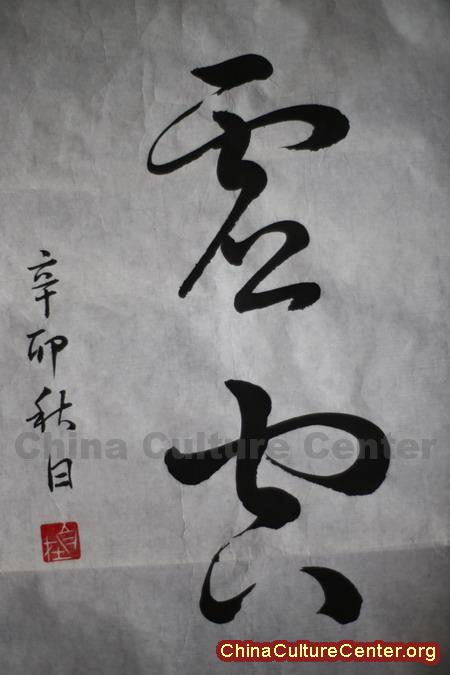 虛
辛卯秋日
自在
China Culture Center
ChinaCultureCenter.org